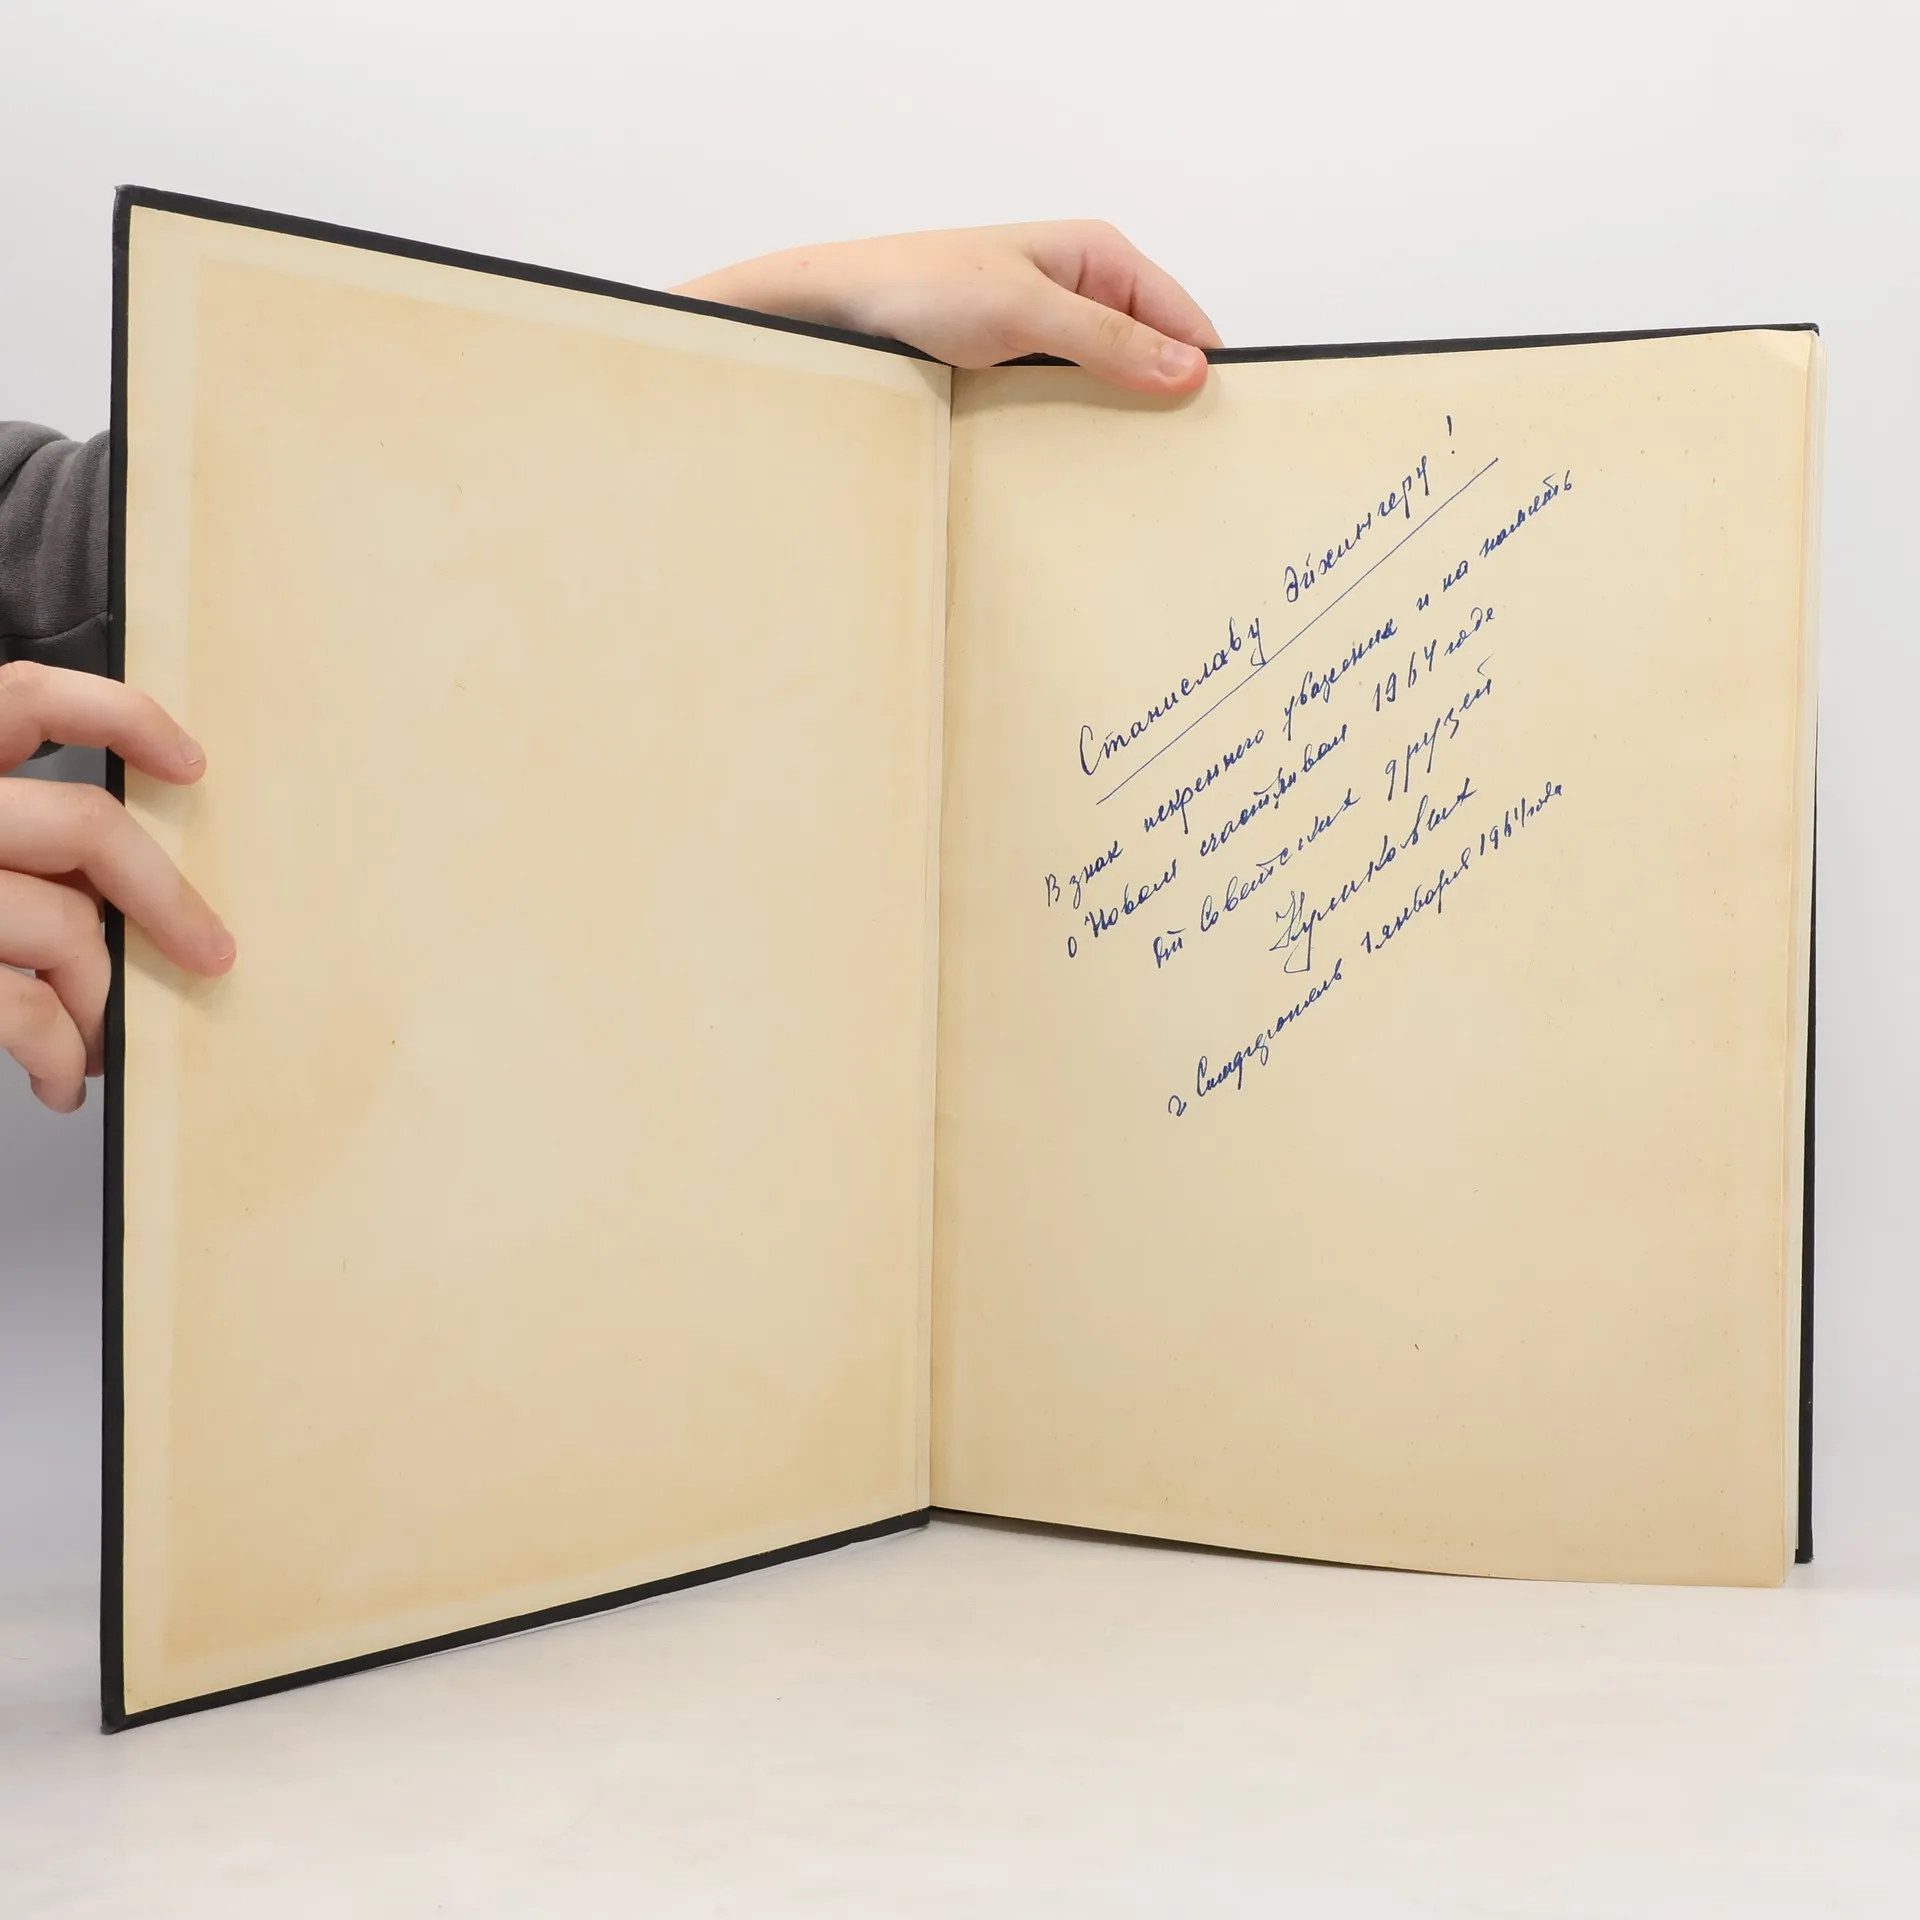 Станиславу Эйхингеру!
В знак искреннего уважения и на память
о Новом счастливом 1964 годе
от Советских друзей
Куликовых
г Симферополь 1 января 1964 года